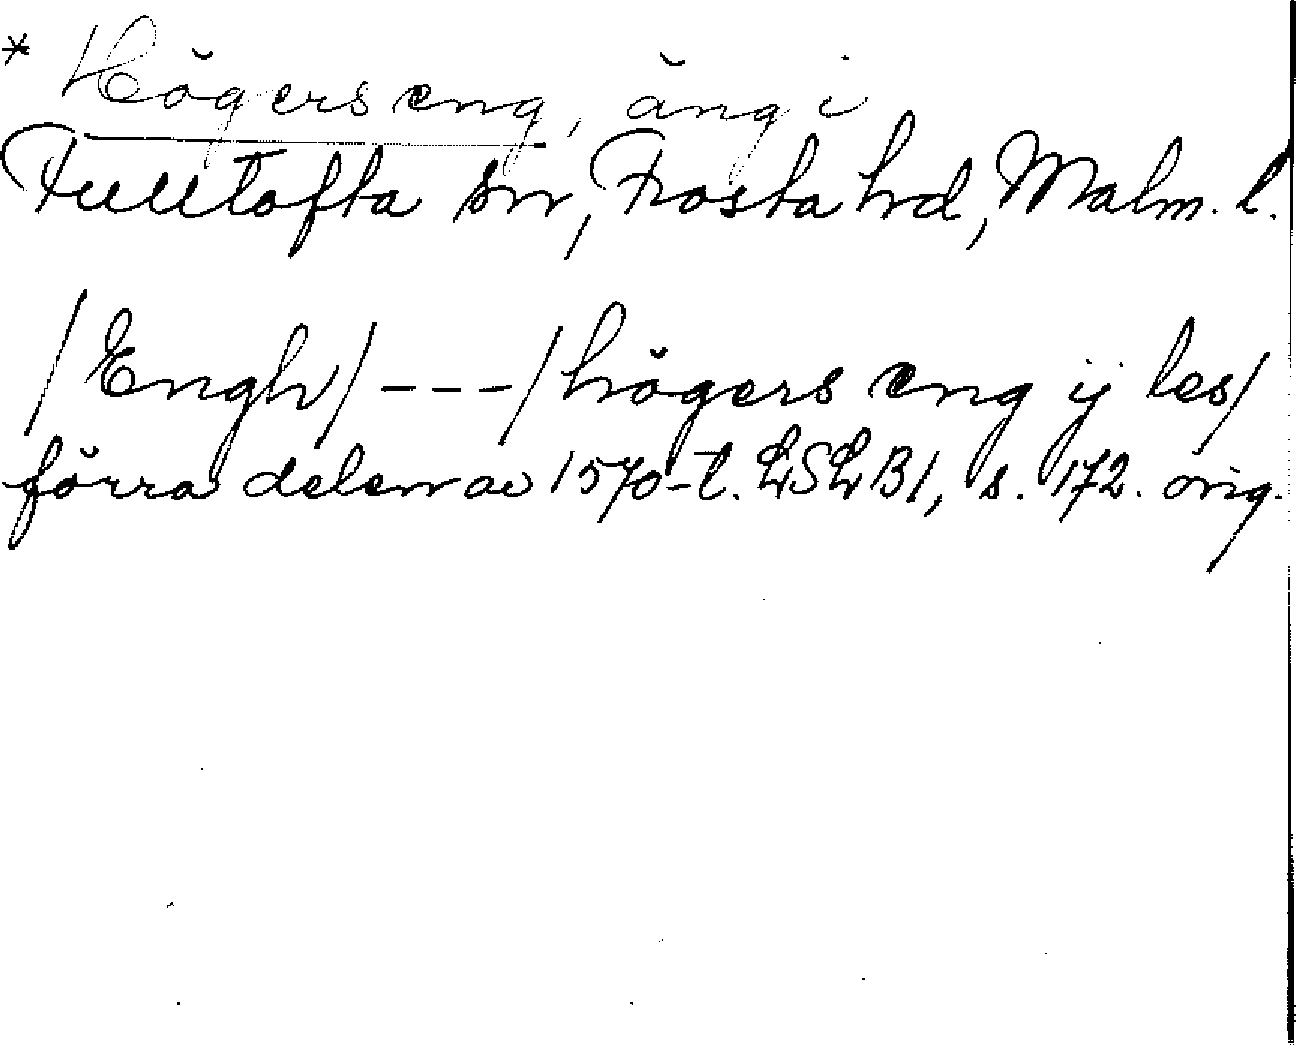 * Högers eng, äng i
Fulltofta sn, Frosta hd, Malm. l.
/Engh/ - - - /högers eng ij les/
förra delen av 1570-t. LSLB1, s. 172. orig.